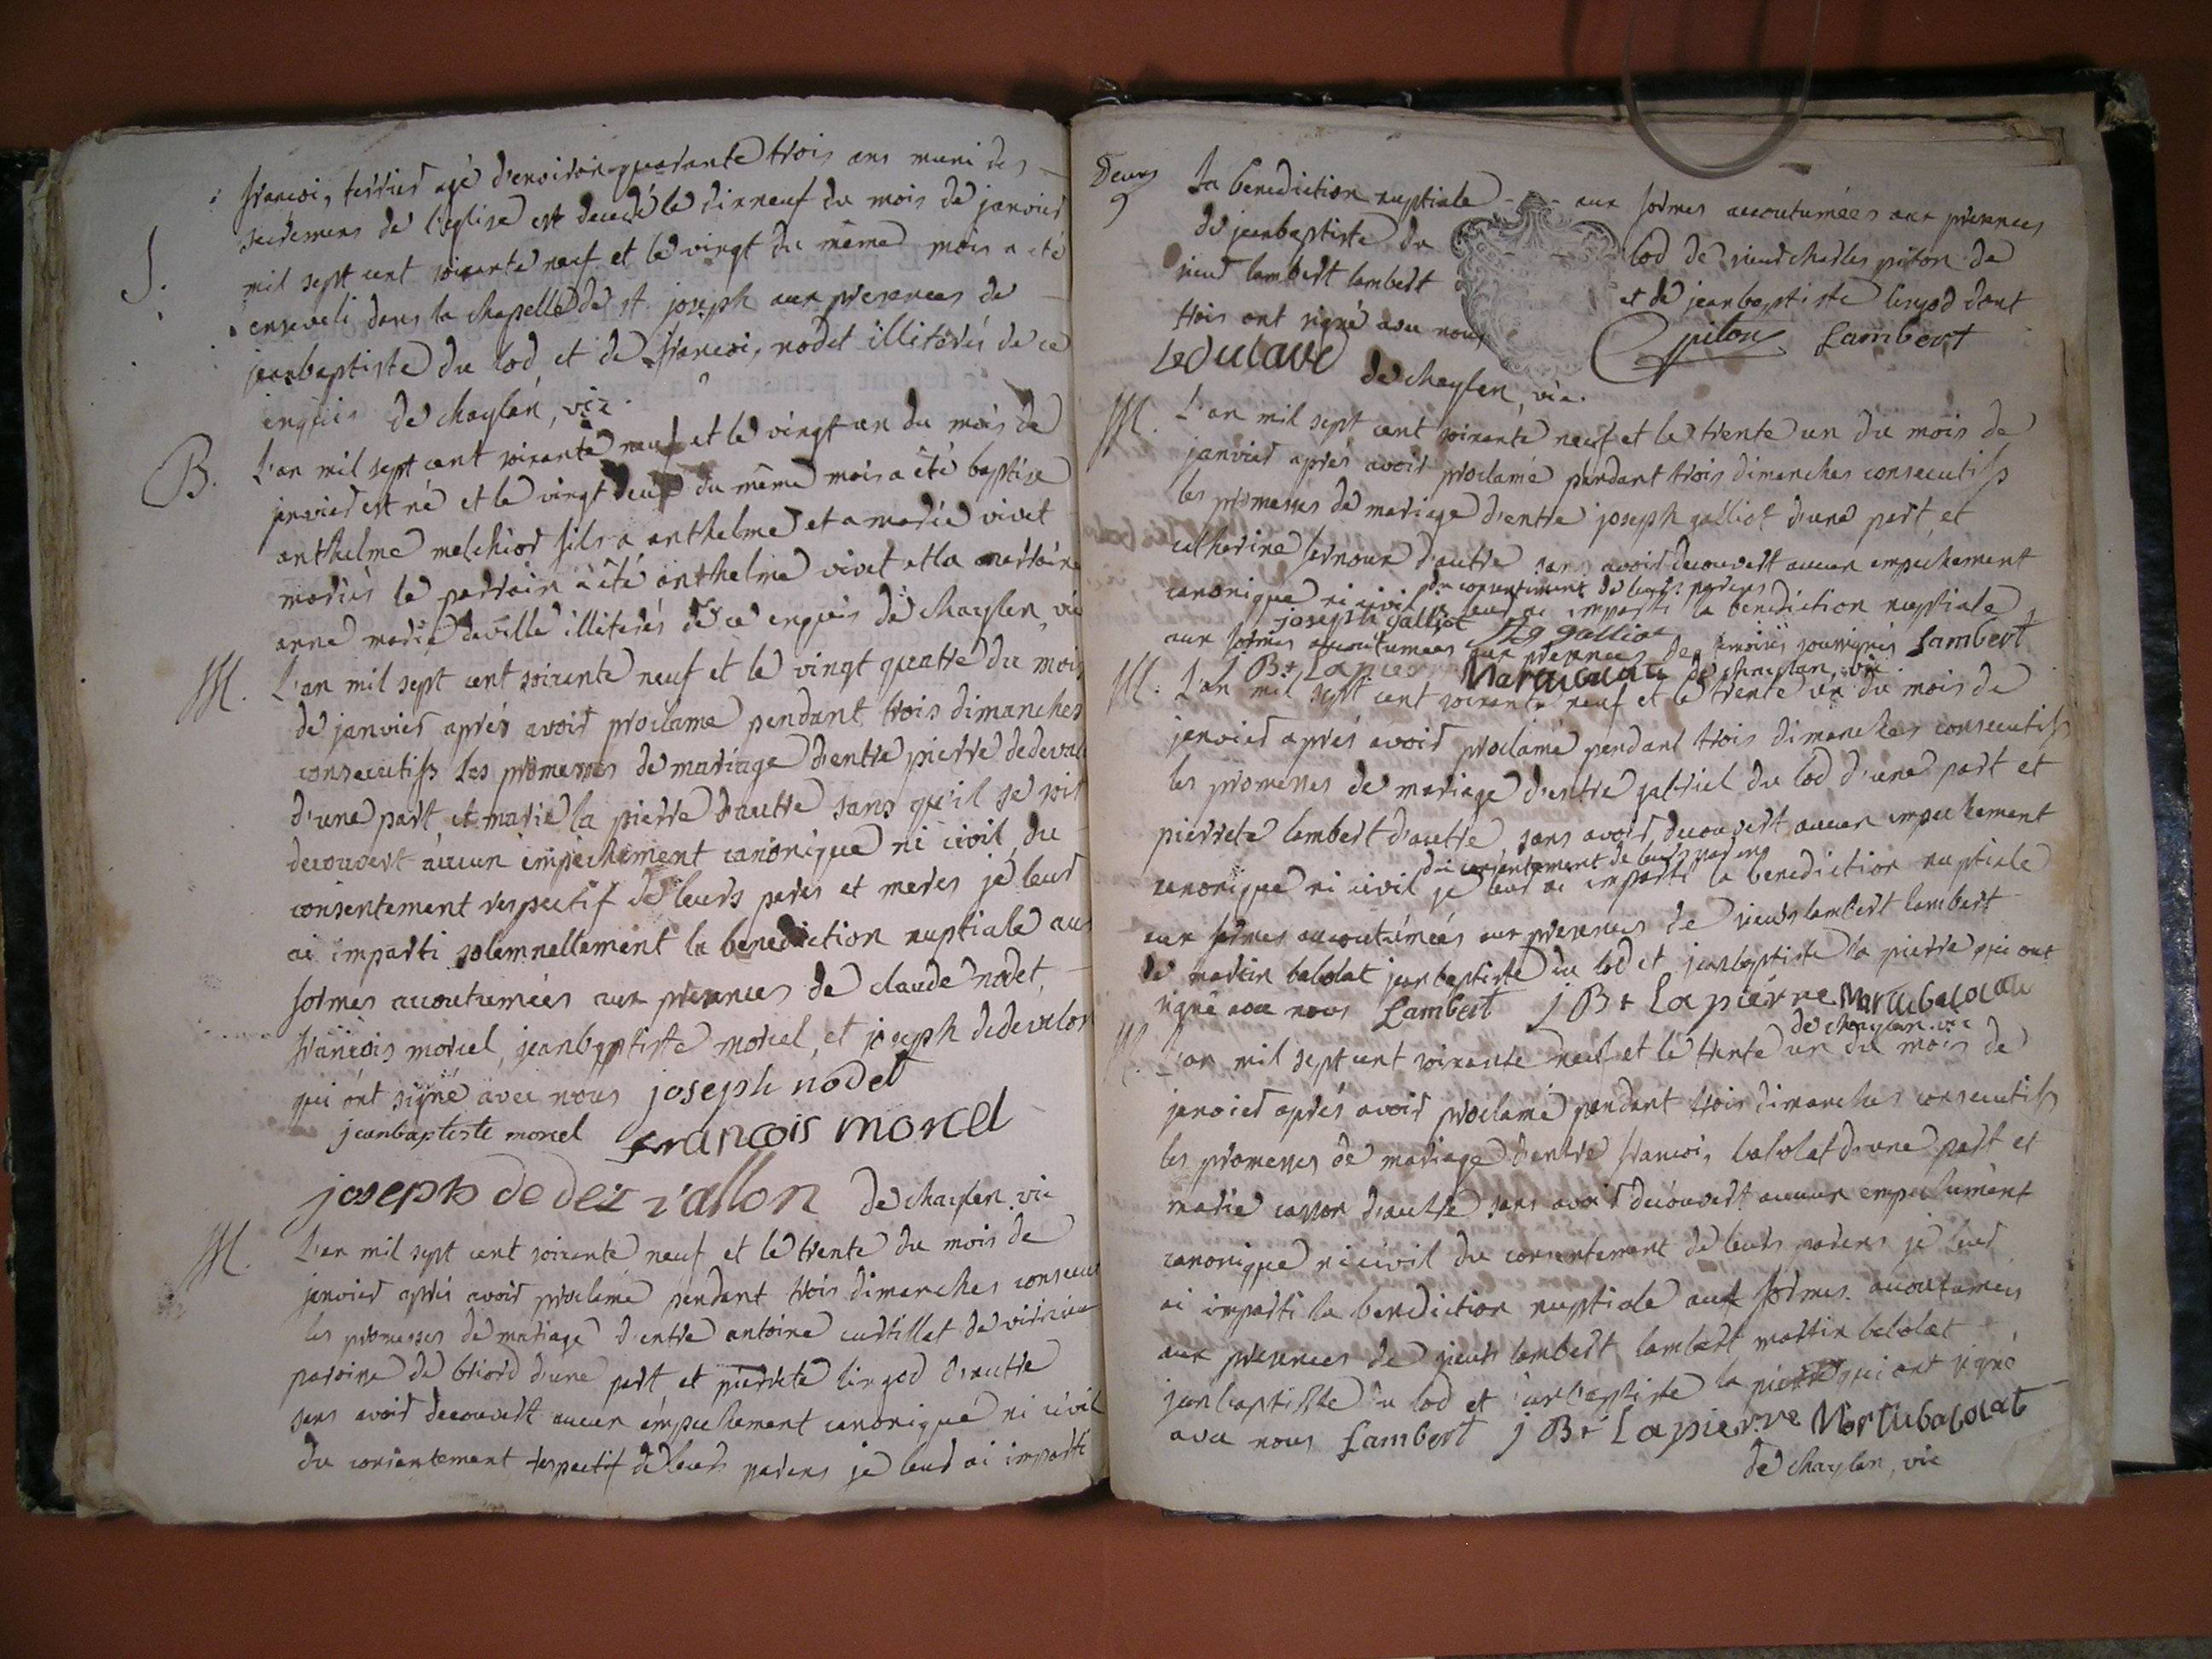 francois, terrier agé d'environ quarante trois ans muni des
S.
sacremens de l'eglise est decedé le dixneuf du mois de janvier
mil sept cent soixante neuf et le vingt du même mois a eté
enseveli dans la chapelle de st joseph aux presences de
jeanbaptiste du lod et de francois, nodet illiterés de ce
enquis de chaylan, vic.
B.
L'an mil sept cent soixante neuf et le vingt un du mois de
janvier est né et le vingt deux du même mois a été baptise
anthelme melchior fils a anthelme et a marie vivet
mariés le parrain a été anthelme vivet et la marraine
anne marie deville illiterés de ce enquis de chaylan, vic
M.
L'an mil sept cent soixante neuf et le vingt quatre du mois
de janvier aprés avoir proclamé pendant trois dimanches
consecutifs les promesses de mariage d'entre pierre dedeval
d'une part et marie la pierre d'autre sans qu'il se soit
decouvert aucun empechement canonique ni civil, du
consentement respectif de leurs peres et meres je leur
ai imparti solemnellement la benediction nuptiale aux
formes accoutumées aux presences de claude nodet,
francois morcel, jeanbaptiste morcel, et joseph dedevalon
qui ont signé avec nous joseph nodet
jeanbaptiste morcel francois morcel
joseph de dez vallon de chaylan, vic
M.
L'an mil sept cent soixante neuf et le trente du mois de
janvier aprés avoir proclamé pendant trois dimanches consecu
les promesses de mariage d'entre antoine curtillet de
paroisse de briord d'une part et pierrete lingod d'autre
sans avoir decouvert aucun empechement canonique ni civil
du consentement respectif de leurs parens je leur ai imparti
Deux
9
la benediction nuptiale aux formes accoutumées aux presences
de jeanbaptiste du lod de sieur charles piton de
sieur lambert lambert et de jeanbaptiste lingod dont
trois ont signé avec nous Cpiton Lambert
de chaylan, vic.
M.
L'an mil sept cent soixante neuf et le trente un du mois de
janvier aprés avoir proclamé pendant trois dimanches consecutifs
les promesses de mariage d'entre joseph galliot d'une part, et
catherine d'autre sans avoir decouvert aucun empechement
du consentement de leurs parens
canonique ni civil je leur ai imparti la benediction nuptiale
joseph galliot galliot
aux formes accoutumées aux presences des temoins soussignés Lambert
JBt Lapierre de chaylan, vic
M.
L'an mil sept cent soixante neuf et le trente un du mois de
janvier aprés avoir proclamé pendant trois dimanches consecutifs
les promesses de mariage d'entre gabriel du lod d'une part et
pierrete lambert d'autre, sans avoir decouvert aucun empechement
du consentement de leurs parens
canonique ni civil je leur ai imparti la benediction nuptiale
aux formes accoutumées aux presences de sieur lambert lambert
de martin balolat jeanbaptiste du lod et jeanbaptiste la pierre qui ont
signé avec nous Lambert JBt Lapierre
de chaylan vic
M.
L'an mil sept cent soixante neuf et le trente un du mois de
janvier aprés avoir proclamé pendant trois dimanches consecutifs
les promesses de mariage d'entre francois, balolat d'une part et
marie d'autre sans avoir decouvert aucun empechement
canonique ni civil du consentement de leurs parens je leur
ai imparti la benediction nuptiale aux formes accoutumées
aux presences de sieur lambert lambert martin balolat
jeanbaptiste du lod et jeanbaptiste la pierre qui ont signé
avec nous Lambert JBt Lapierre
de chaylan, vic